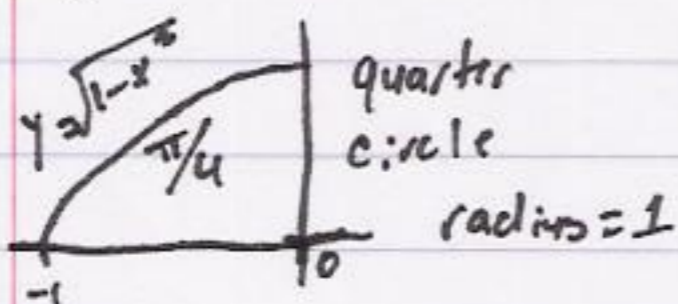 y=√1-x²
π/4
quarter
circle
radius=1
-1
0